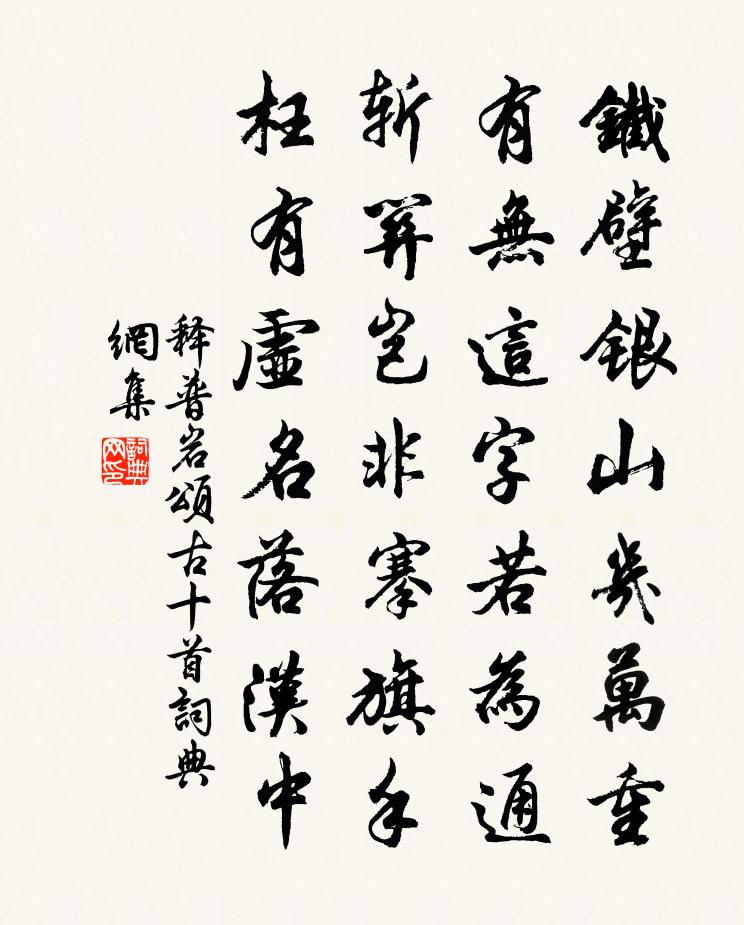 鐵壁銀山幾萬重
有無這字若為通
斬豈非搴旗手
枉有虛名落漢中
释普岩頌古十首詞典
網集
詞典
网印